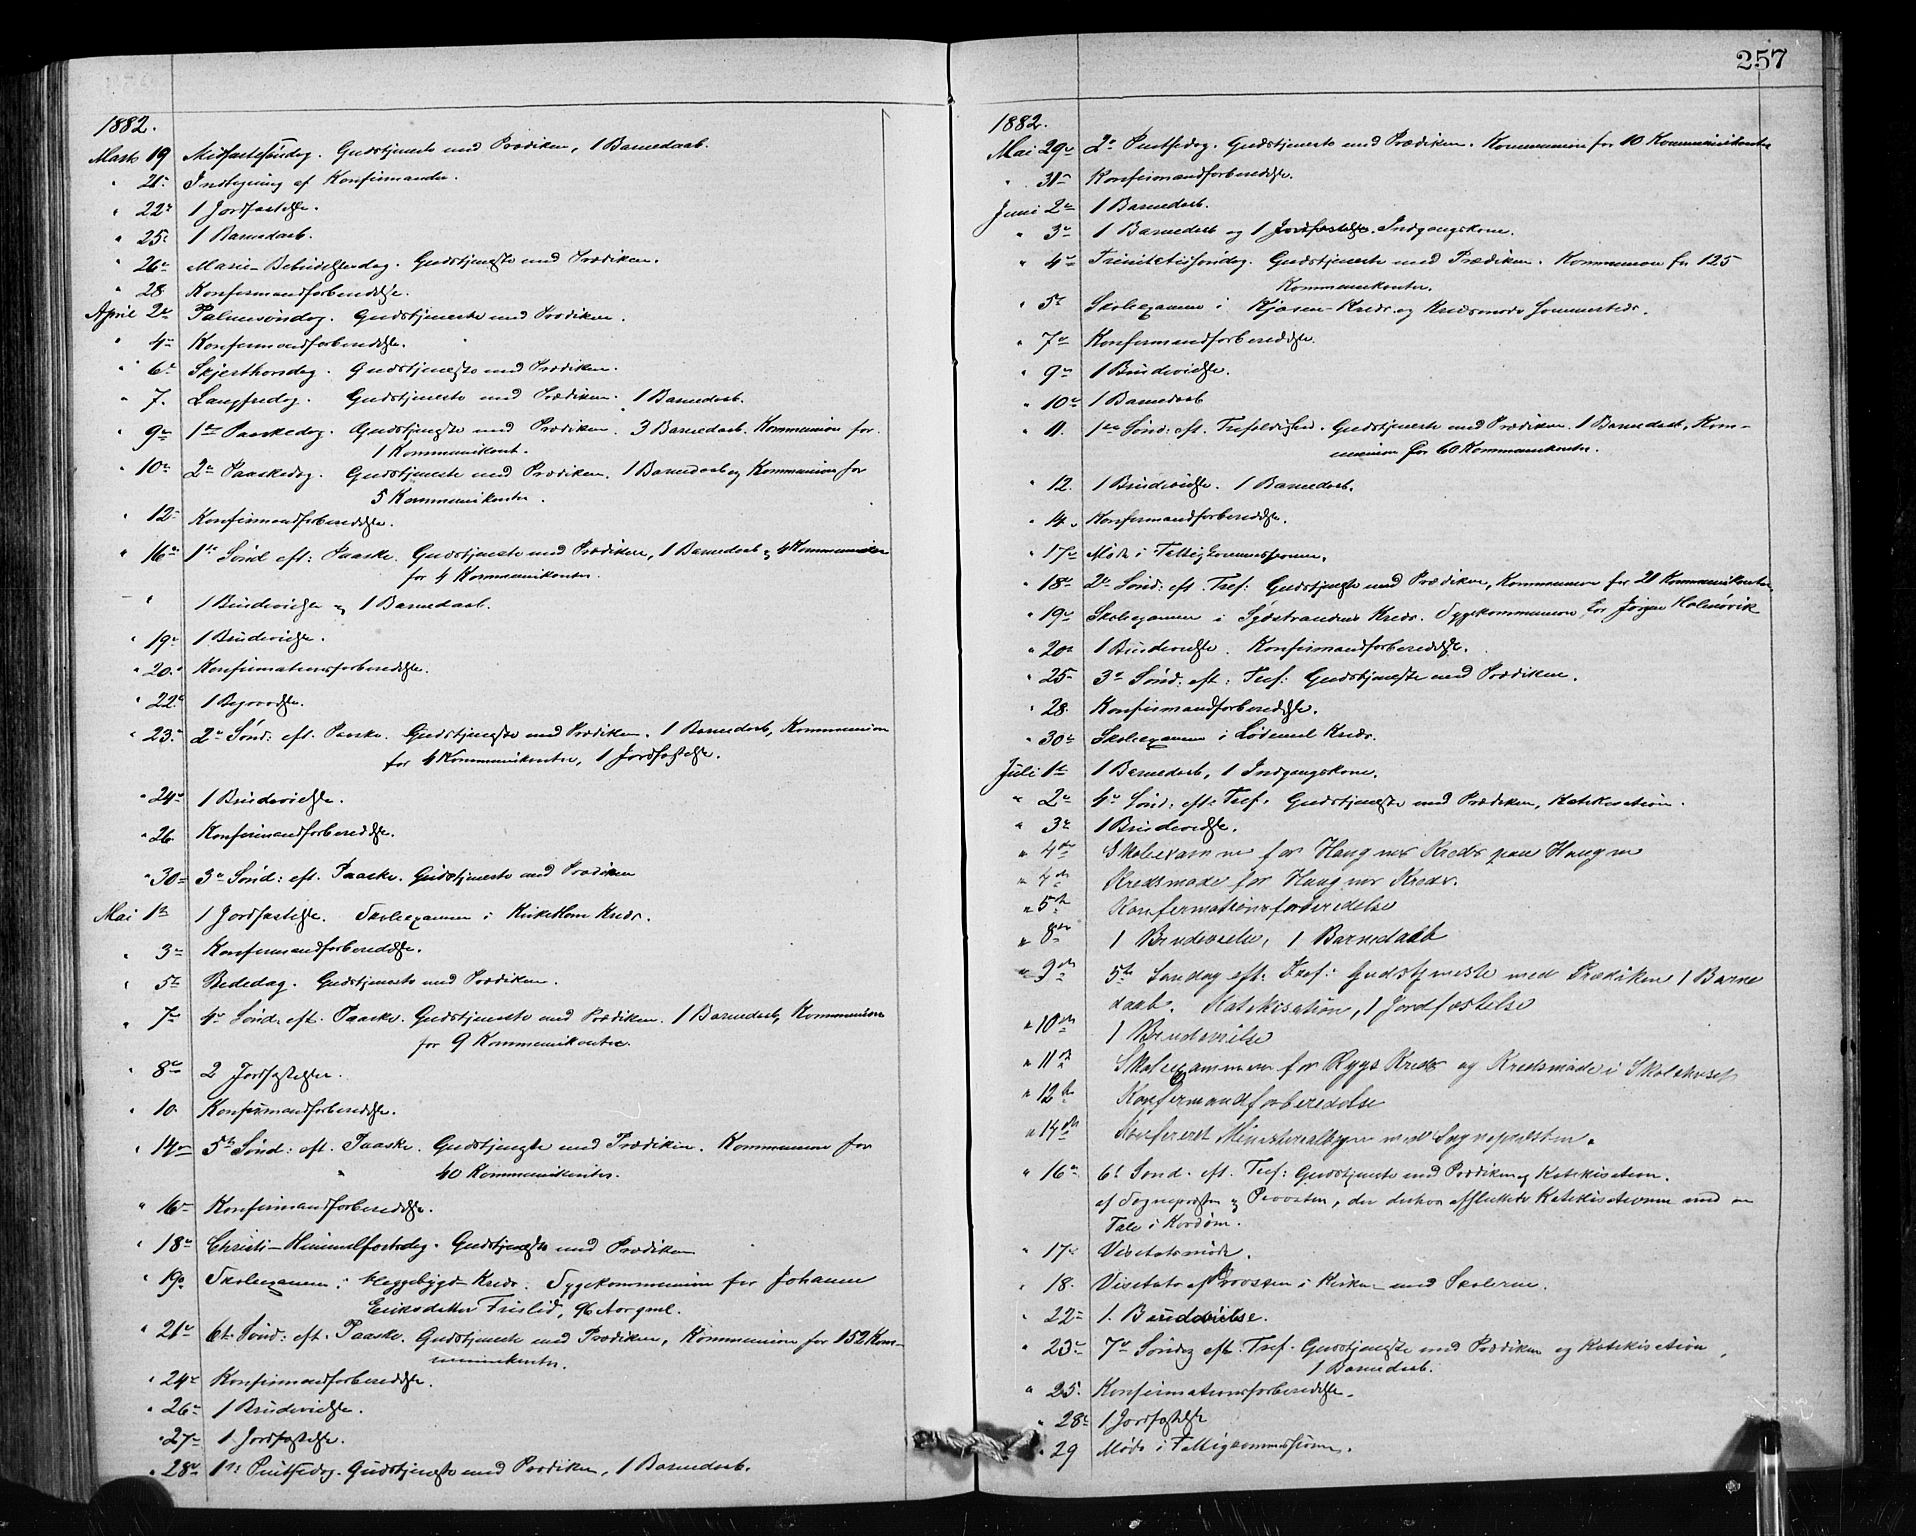 257
1882.
Marts 19 Midfastesöndag. Gudstjeneste med Prædiken, 1 Barnedaab.
" 21. Indtegning af Konfirmander.
" 22. 1 Jordfæstelse.
" 25. 1 Barnedaab.
" 26. Mariæ Bebudelsesdag. Gudstjeneste med Prædiken.
" 28. Konfirmandforberedelse.
April 2. Palmesöndag. Gudstjeneste med Prædiken.
" 4. Konfirmandforberedelse.
" 6. Skjærthorsdag. Gudstjeneste med Prædiken.
" 7. Langfredag. Gudstjeneste med Prædiken. 1 Barnedaab.
" 9. 1ste Paaskedag. Gudstjeneste med Prædiken. 3 Barnedaab. Kommunion for
1 Kommunikant.
" 10. 2. Paaskedag. Gudstjeneste med Prædiken. 1 Barnedaab og Kommunion for
5 Kommunikanter.
" 12. Konfirmandforberedelse.
" 16. 1ste Sönd. eft: Paaske. Gudstjeneste med Prædiken, 1 Barnedaab og Kommunion
for 4 Kommunikanter.
" 1 Brudevielse og 1 Barnedaab.
" 19. 1 Brudevielse.
" 20. Konfirmationsforberedelse.
" 22. 1 Begravelse.
" 23. 2. Sönd: eft. Paaske. Gudstjeneste med Prædiken. 1 Barnedaab, Kommunion
for 4 Kommunikanter, 1 Jordfæstelse.
" 24. 1 Brudevielse.
" 26. Konfirmandforberedelse.
" 30. 3. Sönd: eft. Paaske. Gudstjeneste med Prædiken
Mai 1. 1 Jordfæstelse. Skoleexamen i Kirkeholm Kreds.
" 3. Konfirmandforberedelse.
" 5. Bededag. Gudstjeneste med Prædiken.
" 7. 4. Sönd. eft. Paaske. Gudstjeneste med Prædiken. 1 Barnedaab, Kommunion
for 9 Kommunikanter.
" 8. 2 Jordfæstelser.
" 10. Konfirmandforberedelse.
" 14. 5te Sönd: eft. Paaske. Gudstjeneste med Prædiken. Kommunion for
40 Kommunikanter.
" 16. Konfirmandforberedelse.
" 18. Christi-Himmelfartsdag. Gudstjeneste med Prædiken
" 19. Skoleexamen i Heggebygd Kreds. Sygekommunion for Johanne
Eriksdatter Frislid, 96 Aar gml.
" 21. 6t. Sönd: eft. Paaske. Gudstjeneste med Prædiken, Kommunion for 152 Kom-
munikanter.
" 24. Konfirmandforberedelse.
" 26. 1 Brudevielse.
" 27. 1 Jordfæstelse.
" 28. 1ste Pintsedag. Gudstjeneste med Prædiken, 1 Barnedaab.
1882.
Mai 29. 2. Pintsedag. Gudstjeneste med Prædiken. Kommunion for 10 Kommunikanter
" 31. Konfirmandforberedelse.
Juni 2. 1 Barnedaab.
" 3. 1 Barnedaab og 1 Jordfæstelse. Indgangskone.
" 4. Trinitatissöndag. Gudstjeneste med Prædiken. Kommunion for 125
Kommunikanter.
" 5. Skoleexamen i Kjøsen-Kreds og Kredsmøde sammesteds.
" 7. Konfirmandforberedelse.
" 9. 1 Brudevielse.
" 10. 1 Barnedaab
" 11. 1ste Sönd: eft. Trefoldighed. Gudstjeneste med Prædiken. 1 Barnedaab, Kom-
munion for 60 Kommunikanter.
" 12. 1 Brudevielse. 1 Barnedaab.
" 14. Konfirmandforberedelse.
" 17. Møde i Fattigkommissionen.
" 18. 2. Sönd: eft. Tref: Gudstjeneste med Prædiken, Kommunion for 21 Kommunikanter
" 19. Skoleexamen i Sydstrandens Kreds. Sygekommunion for Jørgen Holmøvik
" 20. 1 Brudevielse. Konfirmandforberedelse.
" 25. 3. Sönd: eft. Tref: Gudstjeneste med Prædiken.
" 28. Konfirmandforberedelse.
" 30. Skoleexamen i Lødemel Kreds.
Juli 1. 1 Barnedaab, 1 Indgangskone.
" 2. 4. Sönd: eft: Tref. Gudstjeneste med Prædiken, Katekisation.
" 3. 1 Brudevielse.
" 4de Skoleexamen for Haugnes Kreds paa Haugen
" 4de Kredsmøde for Haugnes Kreds.
" 5te Konfermationsforberedelse
" 8de 1 Brudevielse, 1 Barnedaab
" 9de 5te Søndag eft: Tref: Gudstjeneste med Prædiken 1 Barne
daab. Katekisation, 1 Jordfæstelse
" 10de 1 Brudevielse
" 11te Skoleexammen for Rygs Kreds og Kredsmøde i Skolehuset
" 12te Konfermandforberedelse
" 14de Konfereret Ministerialbogen med Sognepræsten.
" 16. 6. Sönd. eft. Tref: Gudstjeneste med Prædiken og Katekisation.
af Sognepræsten og Provsten, der derhos afsluttede Katekisationen med en
Tale i Kordøren.
" 17. Visitatsmøde.
" 18. Visitats af Provsten i Kirken med Skolerne.
" 22. 1. Brudevielse.
" 23. 7. Söndag eft. Tref. Gudstjeneste med Prædiken og Katekisation,
1 Barnedaab.
" 25. Konfirmationsforberedelse.
" 28. 1 Jordfæstelse
" 29 Møde i Fattigkommissionen.